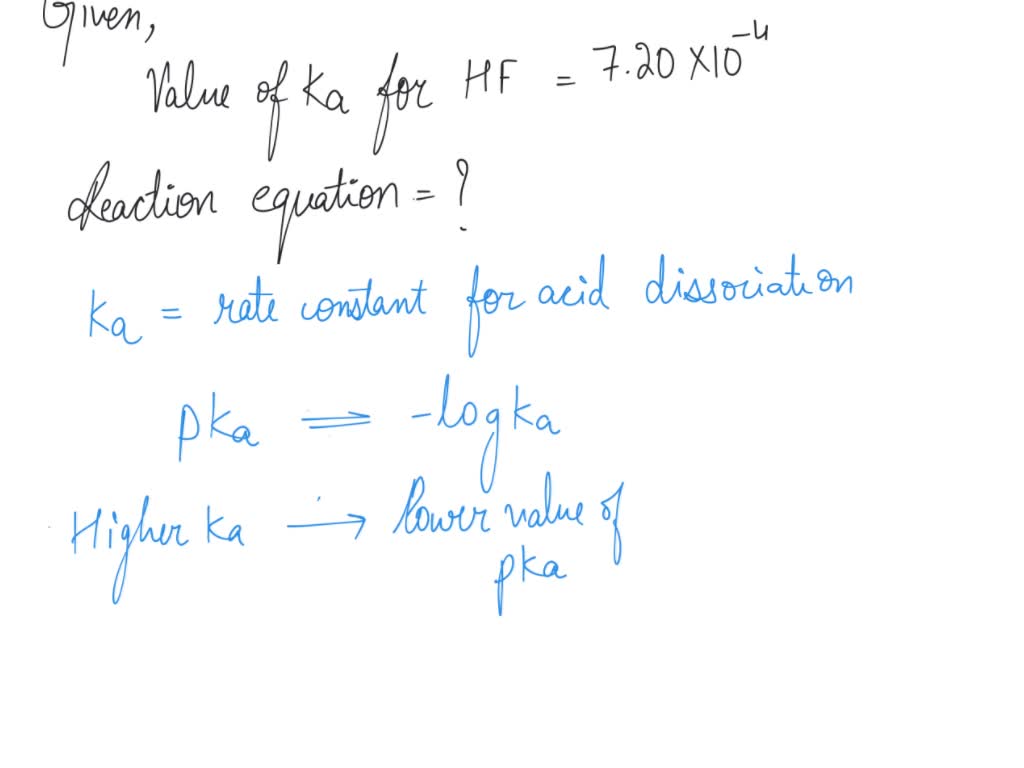 Given,
Value of Ka for HF = 7.20 X10⁻⁴
Reaction equation = ?
Ka = rate constant for acid dissociation
pka ⇌ -logka
Higher ka → lower value of
pka